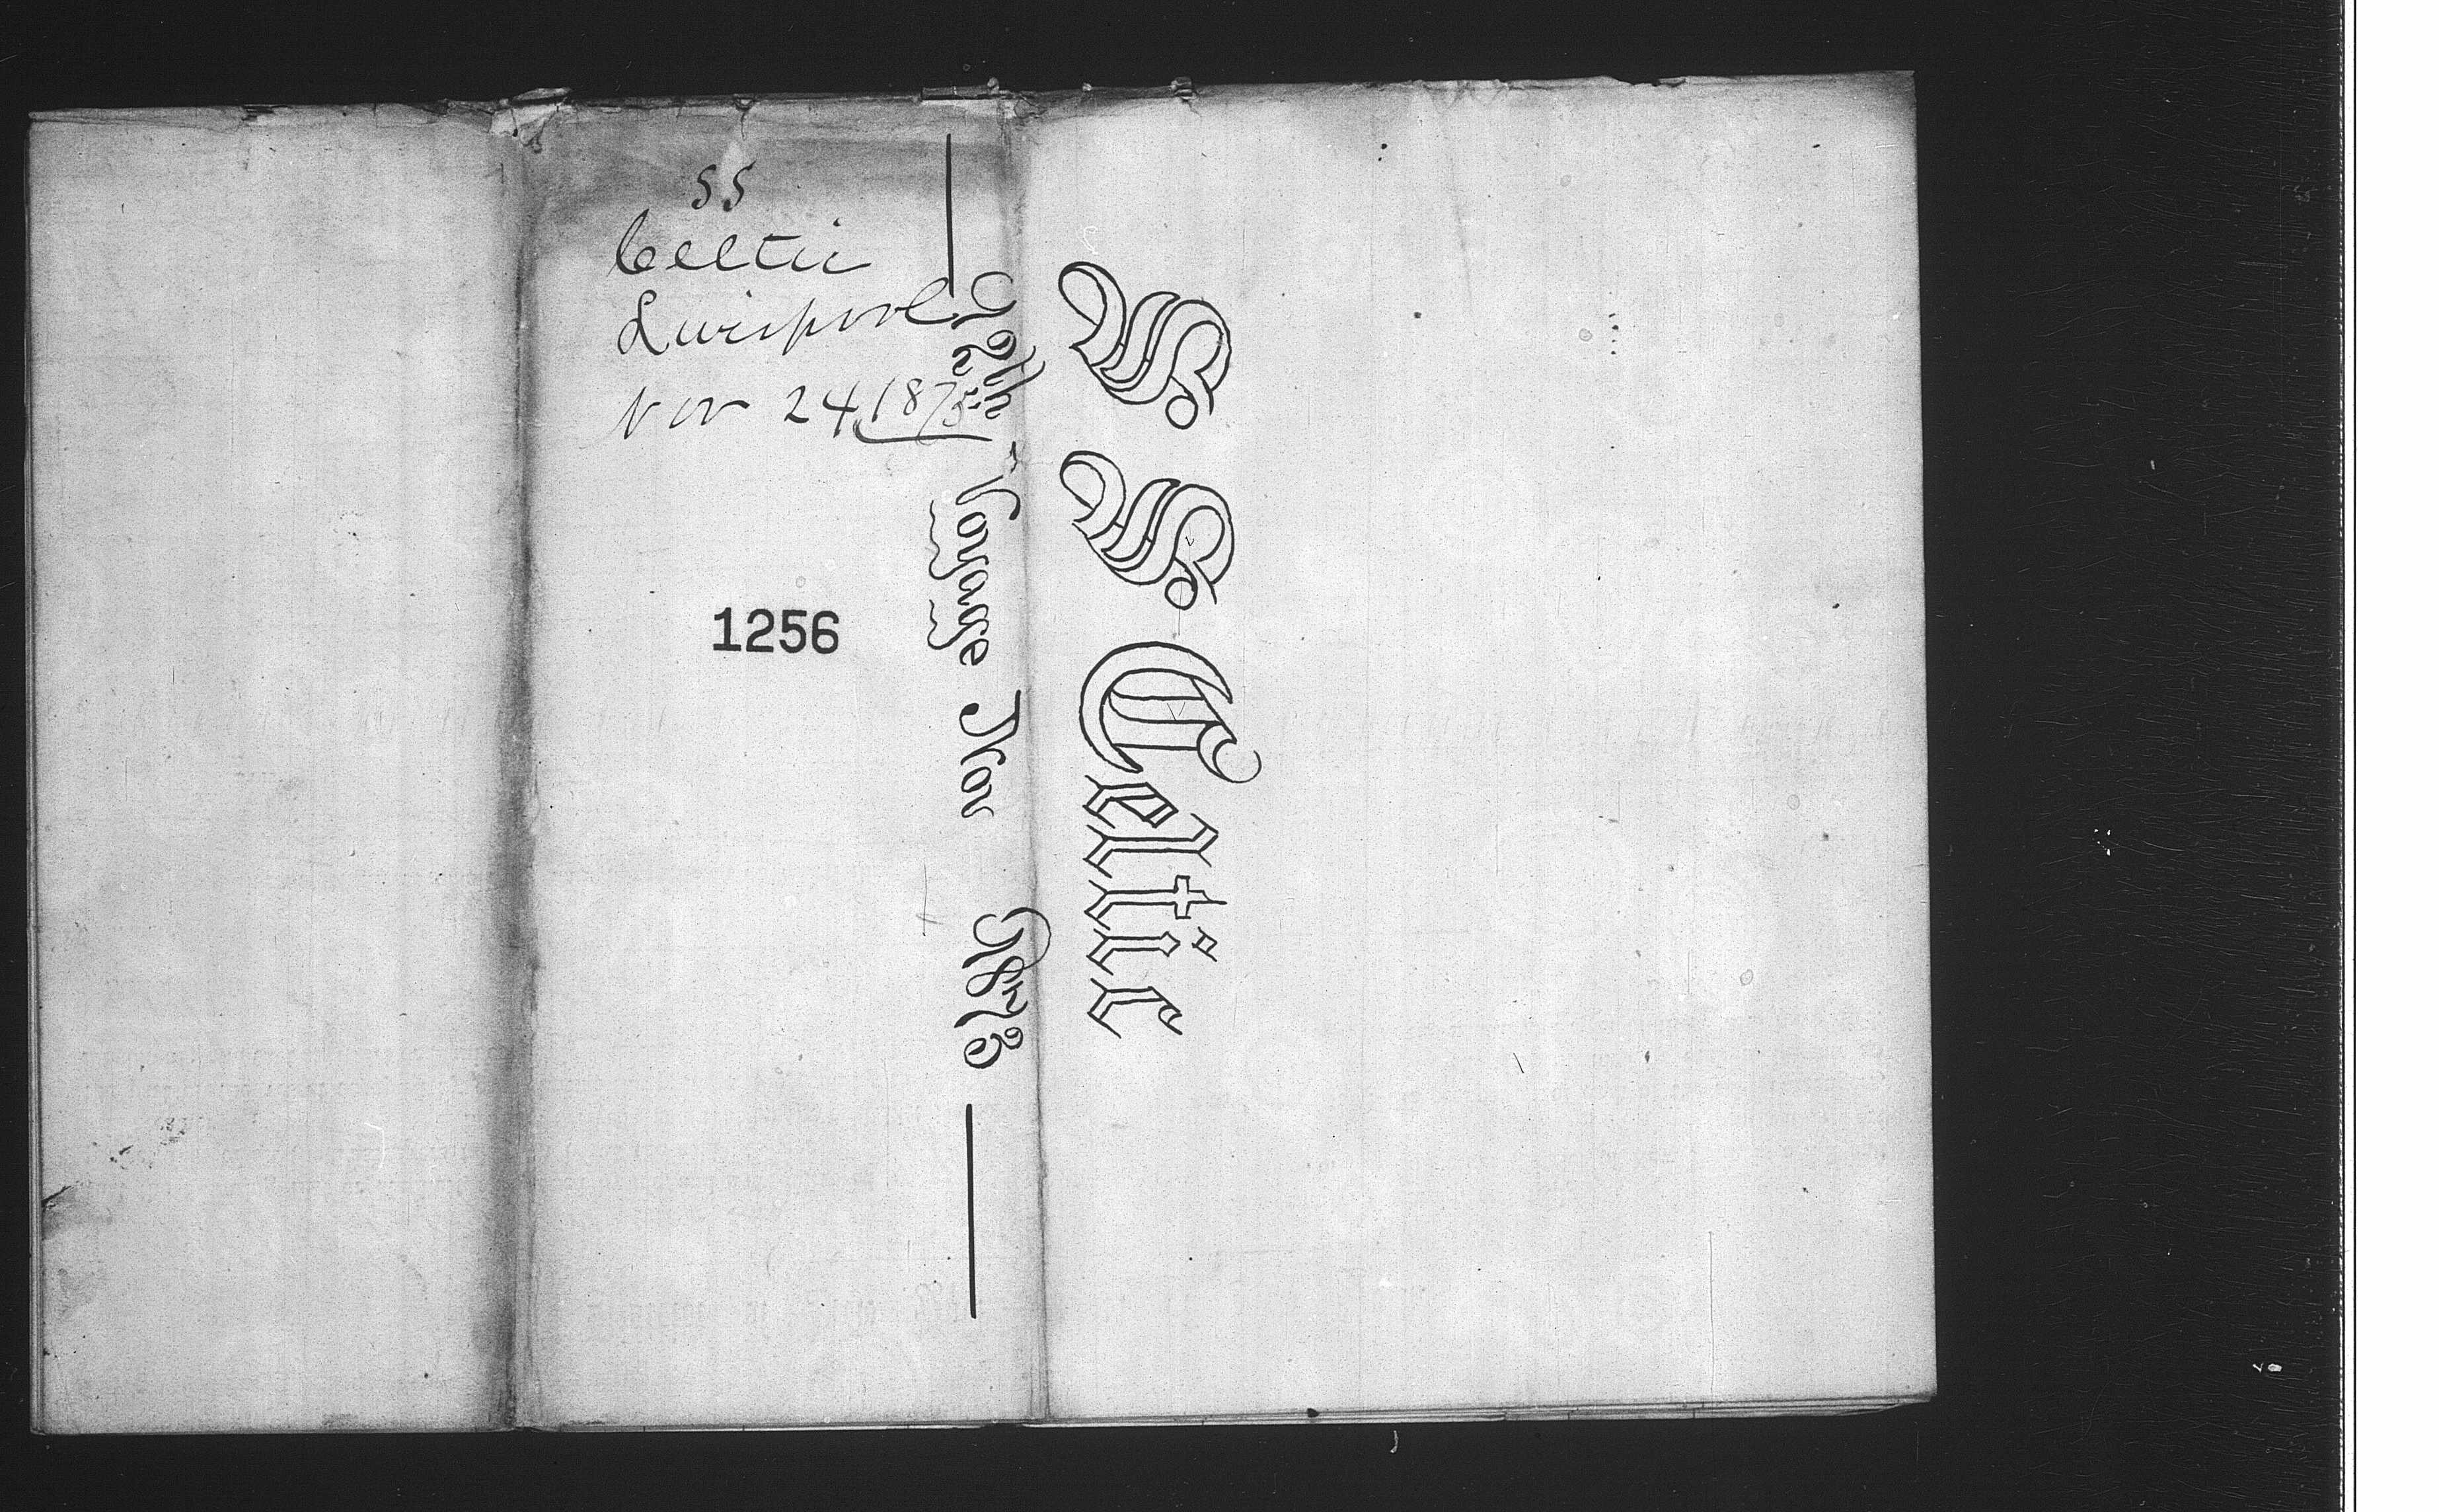 SS
Celtic
Liverpool
Nov 24, 1875
1256
S. S. Celtic
Voyage Nov 1875